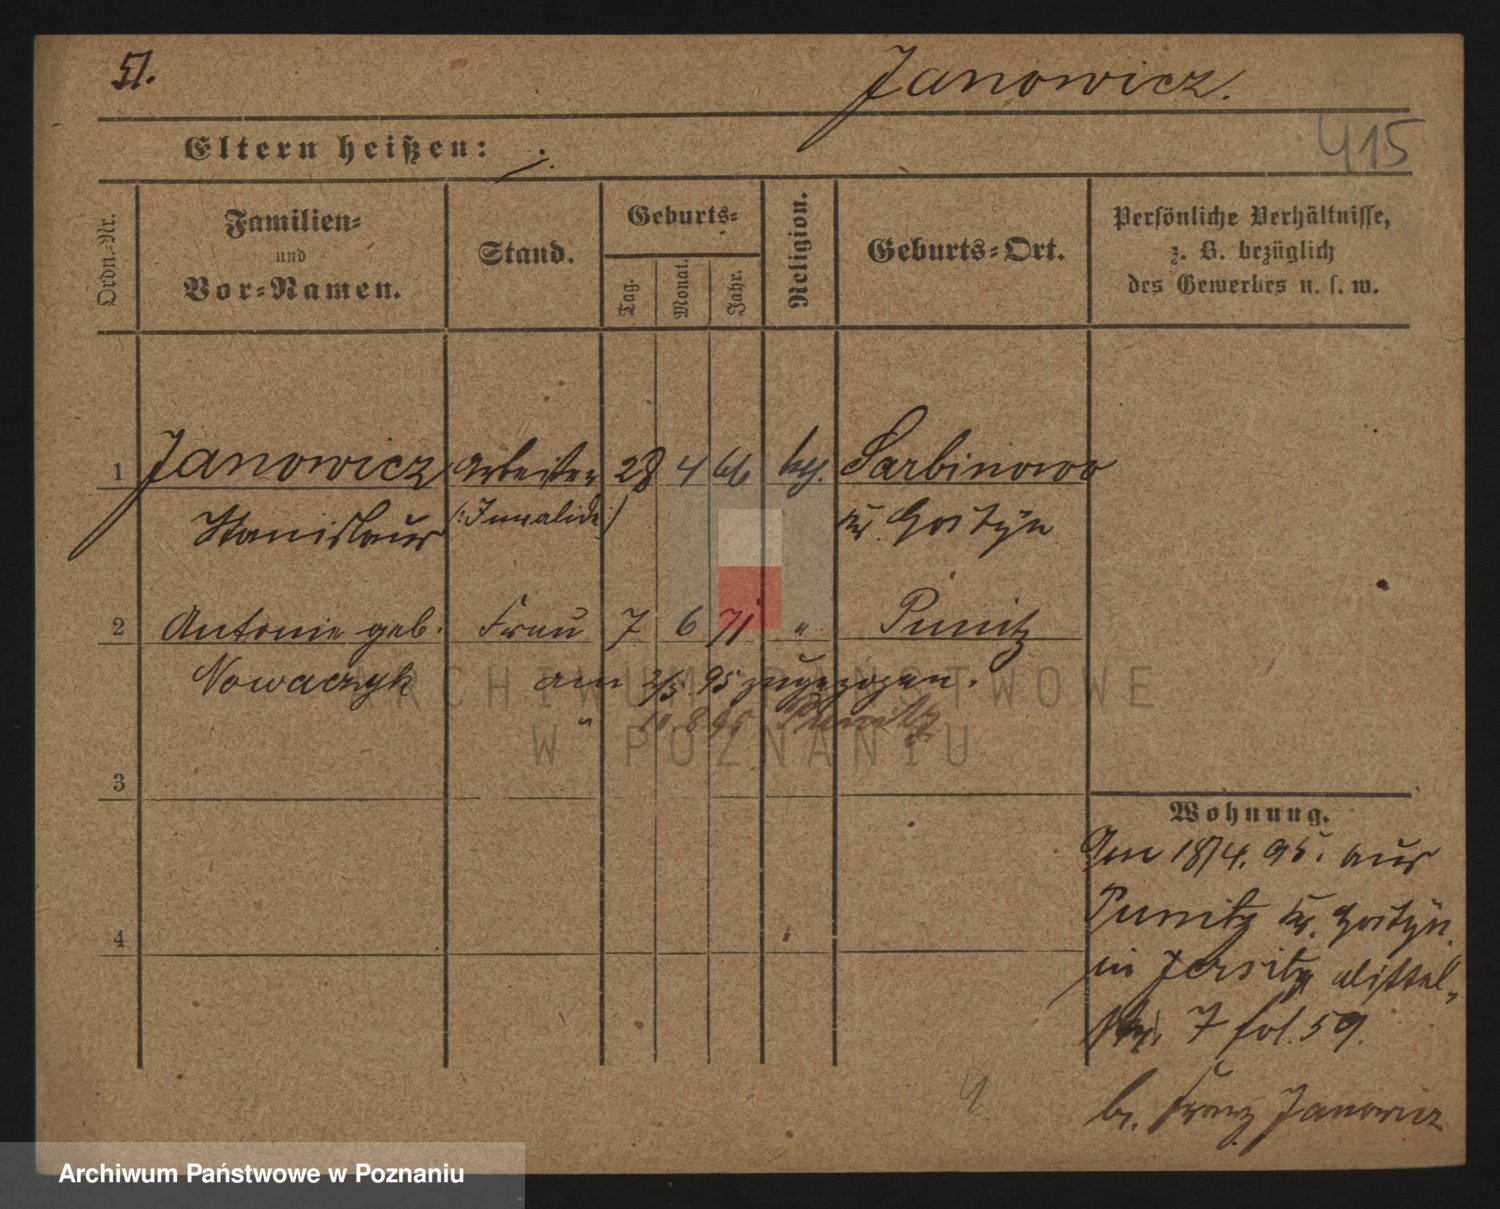 51.
Janowicz.
415
Eltern heißen: ./.
Ordn.-Nr.
Familien-
und
Vor-Namen.
Stand.
Geburts-
Tag.
Monat.
Jahr.
Religion.
Geburts-Ort.
Persönliche Verhältnisse,
z. B. bezüglich
des Gewerbes u. s. w.
1 Janowicz Arbeiter 28 4 66 kg. Sarbinowo
Stanislaus (:Invalide:) Kr. Gostyn
2 Antonie geb. Frau 7 6 71 " Punitz
Nowaczyk am 2/5. 95 zugezogen.
" 10. 8. 95 Punitz
3
4
Wohnung.
Am 18/4. 95. aus
Punitz Kr. Gostyn.
in Jersitz Mittel-
str. 7 fol. 59.
br. Franz Janowicz
4
ARCHIWUM PAŃSTWOWE
W POZNANIU
Archiwum Państwowe w Poznaniu